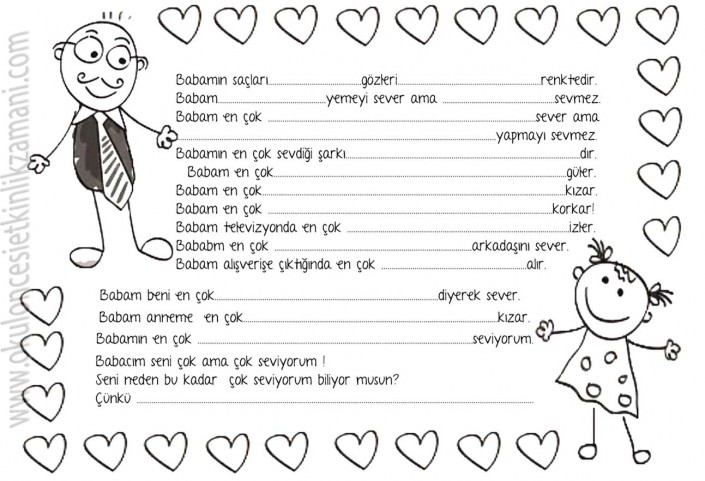 www.okuloncesietkinlikzamani.com
Babamın saçları..............................gözleri...............................................renktedir.
Babam...................................yemeyi sever ama .....................................sevmez.
Babam en çok ........................................................................................sever ama
..........................................................................................................yapmayı sevmez.
Babamın en çok sevdiği şarkı.............................................................................dır.
Babam en çok.................................................................................................güler.
Babam en çok....................................................................................................kızar.
Babam en çok ..............................................................................................korkar!
Babam televizyonda en çok .........................................................................izler.
Bababm en çok ..................................................................arkadaşını sever.
Babam alışverişe çıktığında en çok ................................................alır.
Babam beni en çok..........................................................................diyerek sever.
Babam anneme en çok....................................................................................kızar.
Babamın en çok ...........................................................................................seviyorum.
Babacım seni çok ama çok seviyorum !
Seni neden bu kadar çok seviyorum biliyor musun?
Çünkü ....................................................................................................................................